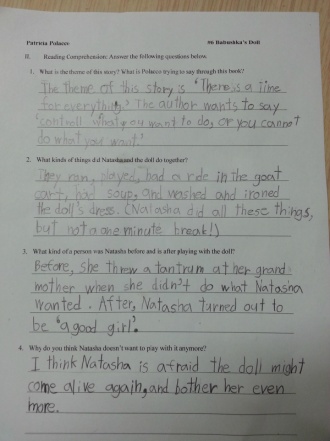 Patricia Polacco #6 Babushka's Doll
II. Reading Comprehension: Answer the following questions below.
1. What is the theme of this story? What is Polacco trying to say through this book?
The theme of this story is 'There is a time
for everything.' The author wants to say
'controll what you want to do, or you cannot
do what you want.'
2. What kinds of things did Natasha and the doll do together?
They ran, played, had a ride in the goat
cart, had soup, and washed and ironed
the doll's dress. (Natasha did all these things,
but not a one minute break!)
3. What kind of a person was Natasha before and is after playing with the doll?
Before, she threw a tantrum at her grand
mother when she didn't do what Natasha
wanted. After, Natasha turned out to
be 'a good girl'.
4. Why do you think Natasha doesn't want to play with it anymore?
I think Natasha is afraid the doll might
come alive again, and bother her even
more.